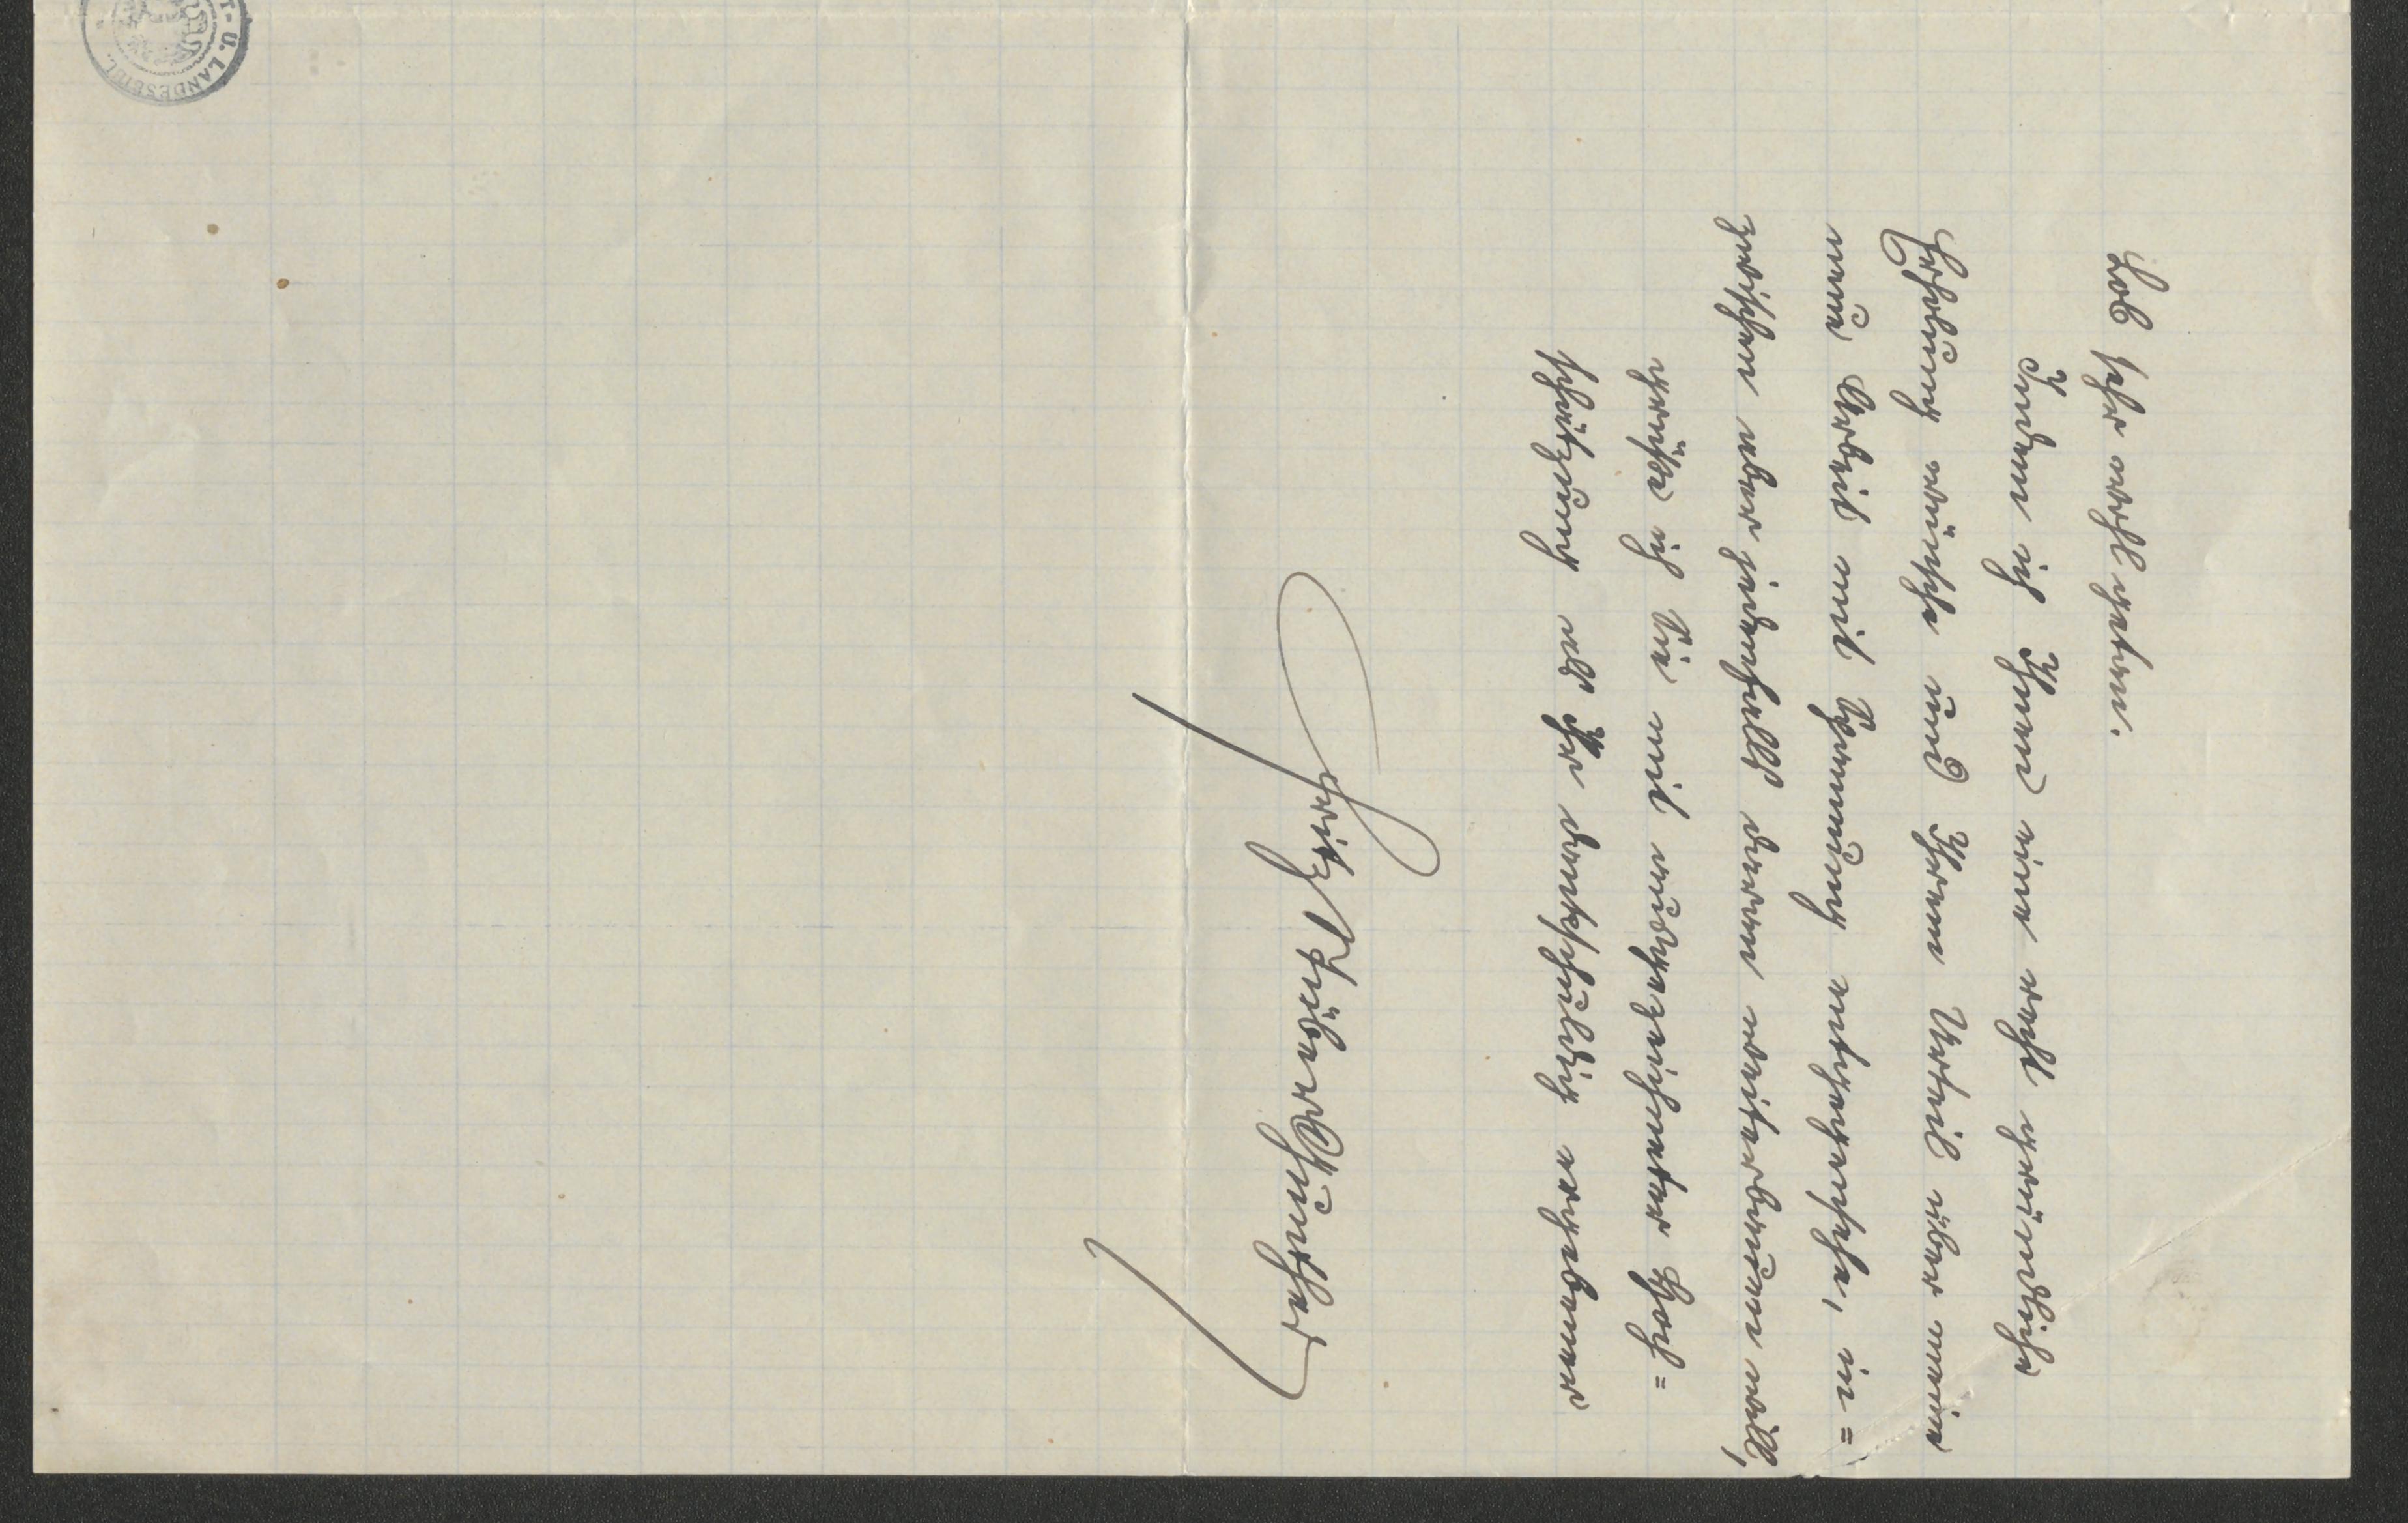 Lob sehr wohl getan.
Indem ich Ihnen eine recht gründliche
Erholung wünsche und Ihrem Urteil über meine
neue Arbeit mit Spannung entgegensehe, in=
zwischen aber jedenfalls daran weiterbauen will,
grüße ich Sie mit ausgezeichneter Hoch=
schätzung als Ihr dankschuldig ergebener
Fritz Stüber-Gunther
T- U. LANDESBIBL.